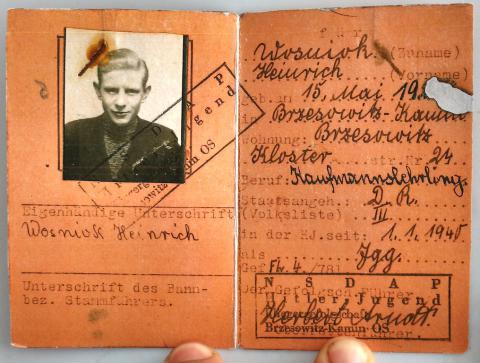 N S D A P
Jugend
Kamin OS
Eigenhändige Unterschrift
Wosniok Heinrich
Unterschrift des Bann-
bez. Stammführers.
für
Wosniok (Zuname)
Heinrich (Vorname)
geb. am 15. Mai 19
Brzesowitz-Kamin
Wohnung: Brzesowitz
Kloster str. Nr. 24
Beruf: Kaufmannslehrling
Staatsangeh: D. R.
(Volksliste) III
in der HJ. seit: 1. 1. 1940
als Jgg.
Gef. 4./781
Der Gefolgsch. Führer
N S D A P
Hitler Jugend
Herbert Arndt
Brzesowitz-Kamin OS